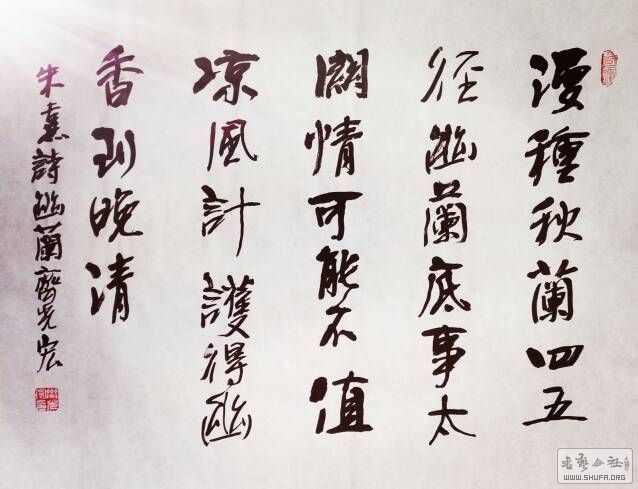 漫種秋蘭四五
徑幽蘭底事太
關情可能不值
涼風計護得幽
香到晚清
朱熹詩幽蘭齊光宏
书艺公社
WWW.SHUFA.ORG